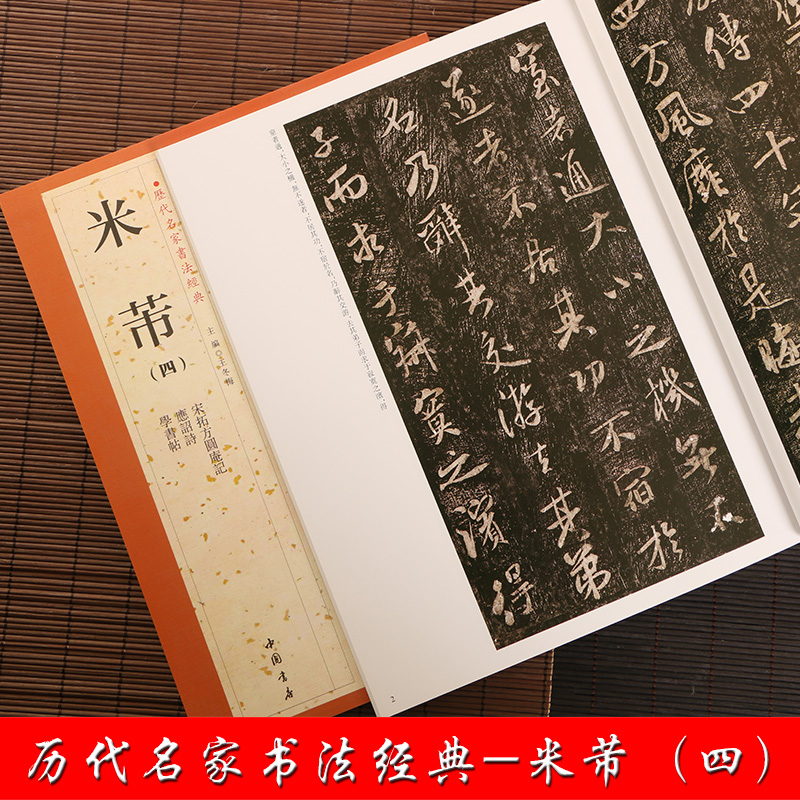 ●歷代名家書法經典
米芾
(四)
主編◎王冬梅
宋拓方圓庵記
應詔詩
學書帖
中国書店
窒者通大小之機無不
遂者不居其功不宿於
名乃辭其交游去其弟
子而求于寂寞之濱得
窒者通,大小之機,無不遂者;不居其功,不宿於名,乃辭其交游,去其弟子而求于寂寞之濱,得
2
傳四十
四方風靡於是晦
历代名家书法经典—米芾（四）